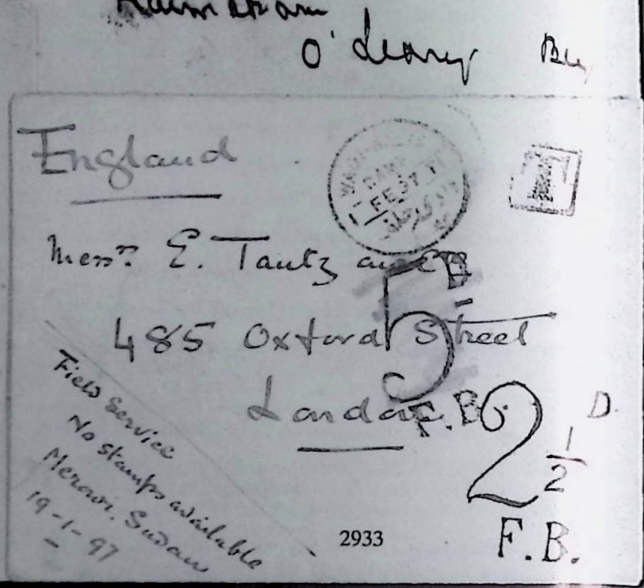 O'Leary
England
Mess.rs E. Tautz and Co
485 Oxford Street
London
T
5 D
F.B.
2 1/2 D.
F.B.
Field Service
No stamps available
Merowi. Sudan
19-1-97
2933